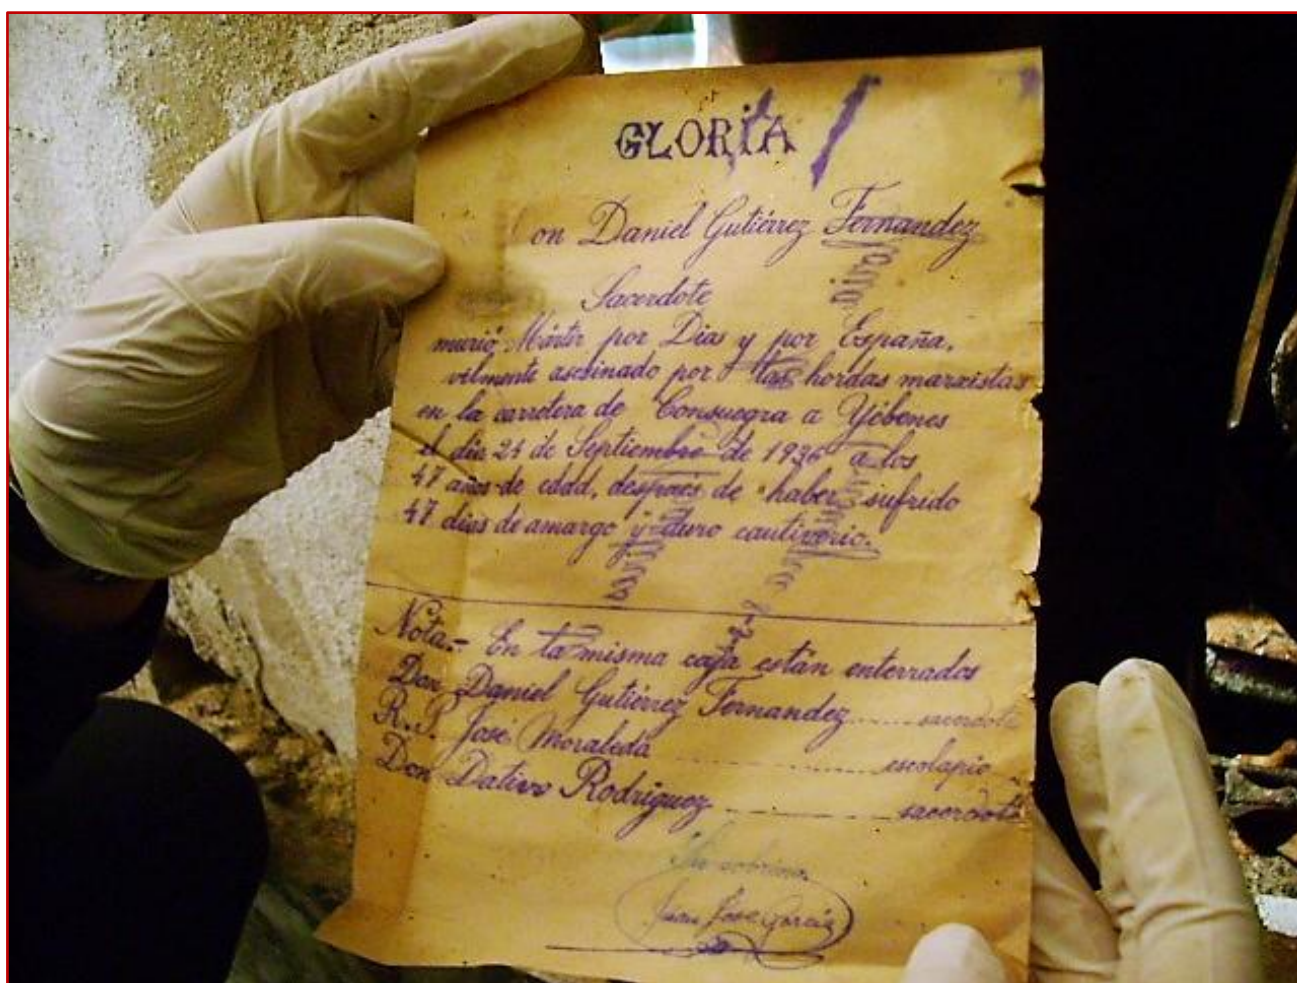 GLORIA
on Daniel Gutiérrez Fernandez
Sacerdote
murió Mártir por Dios y por España,
vilmente asesinado por las hordas marxistas
en la carretera de Consuegra a Yébenes
el dia 24 de Septiembre de 1936 a los
47 años de edad, despues de haber sufrido
47 dias de amargo y duro cautiverio.
Nota.- En la misma caja están enterrados
Don Daniel Gutiérrez Fernandez ..... sacerdote
R. P. José Moraleda ............ escolapio
Don Dativo Rodriguez ............ sacerdote
Su sobrino,
Juan José García